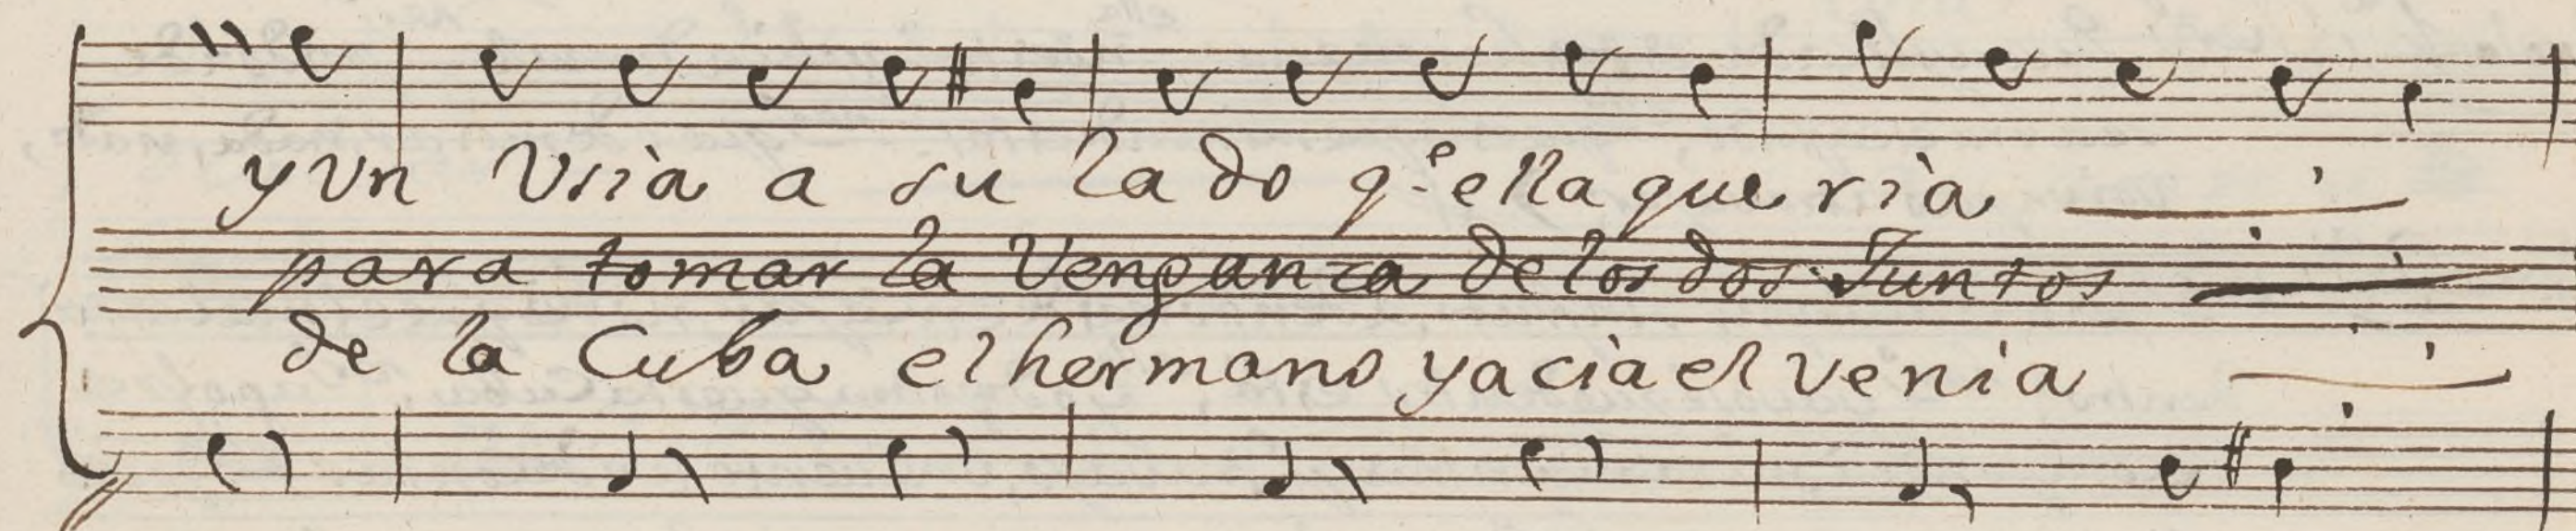 y Vn Vsìa a su lado q.e ella que rìa
para tomar la Venganza de los dos Juntos
de la Cuba el hermano yacìa el venia